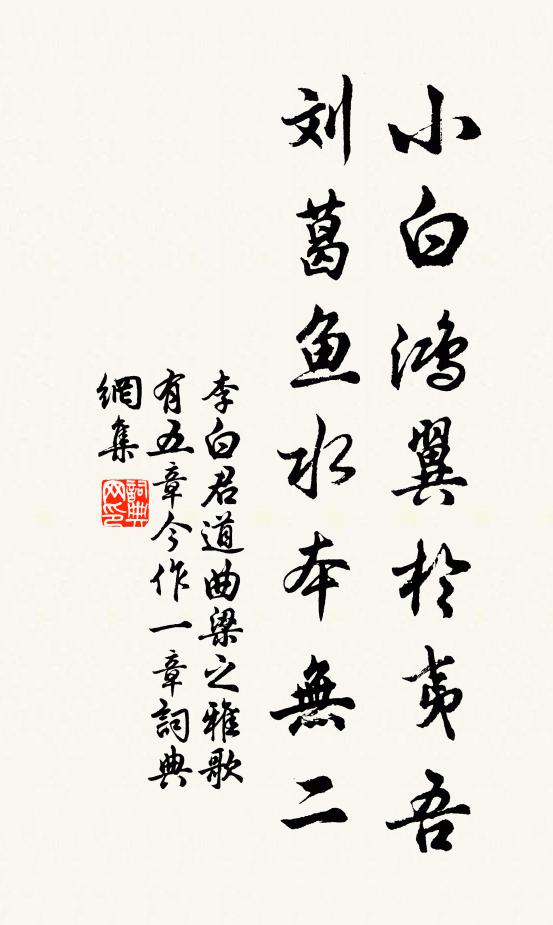 小白鸿翼於夷吾
刘葛鱼水本無二
李白君道曲梁之雅歌
有五章今作一章詞典
網集
詞典
网印